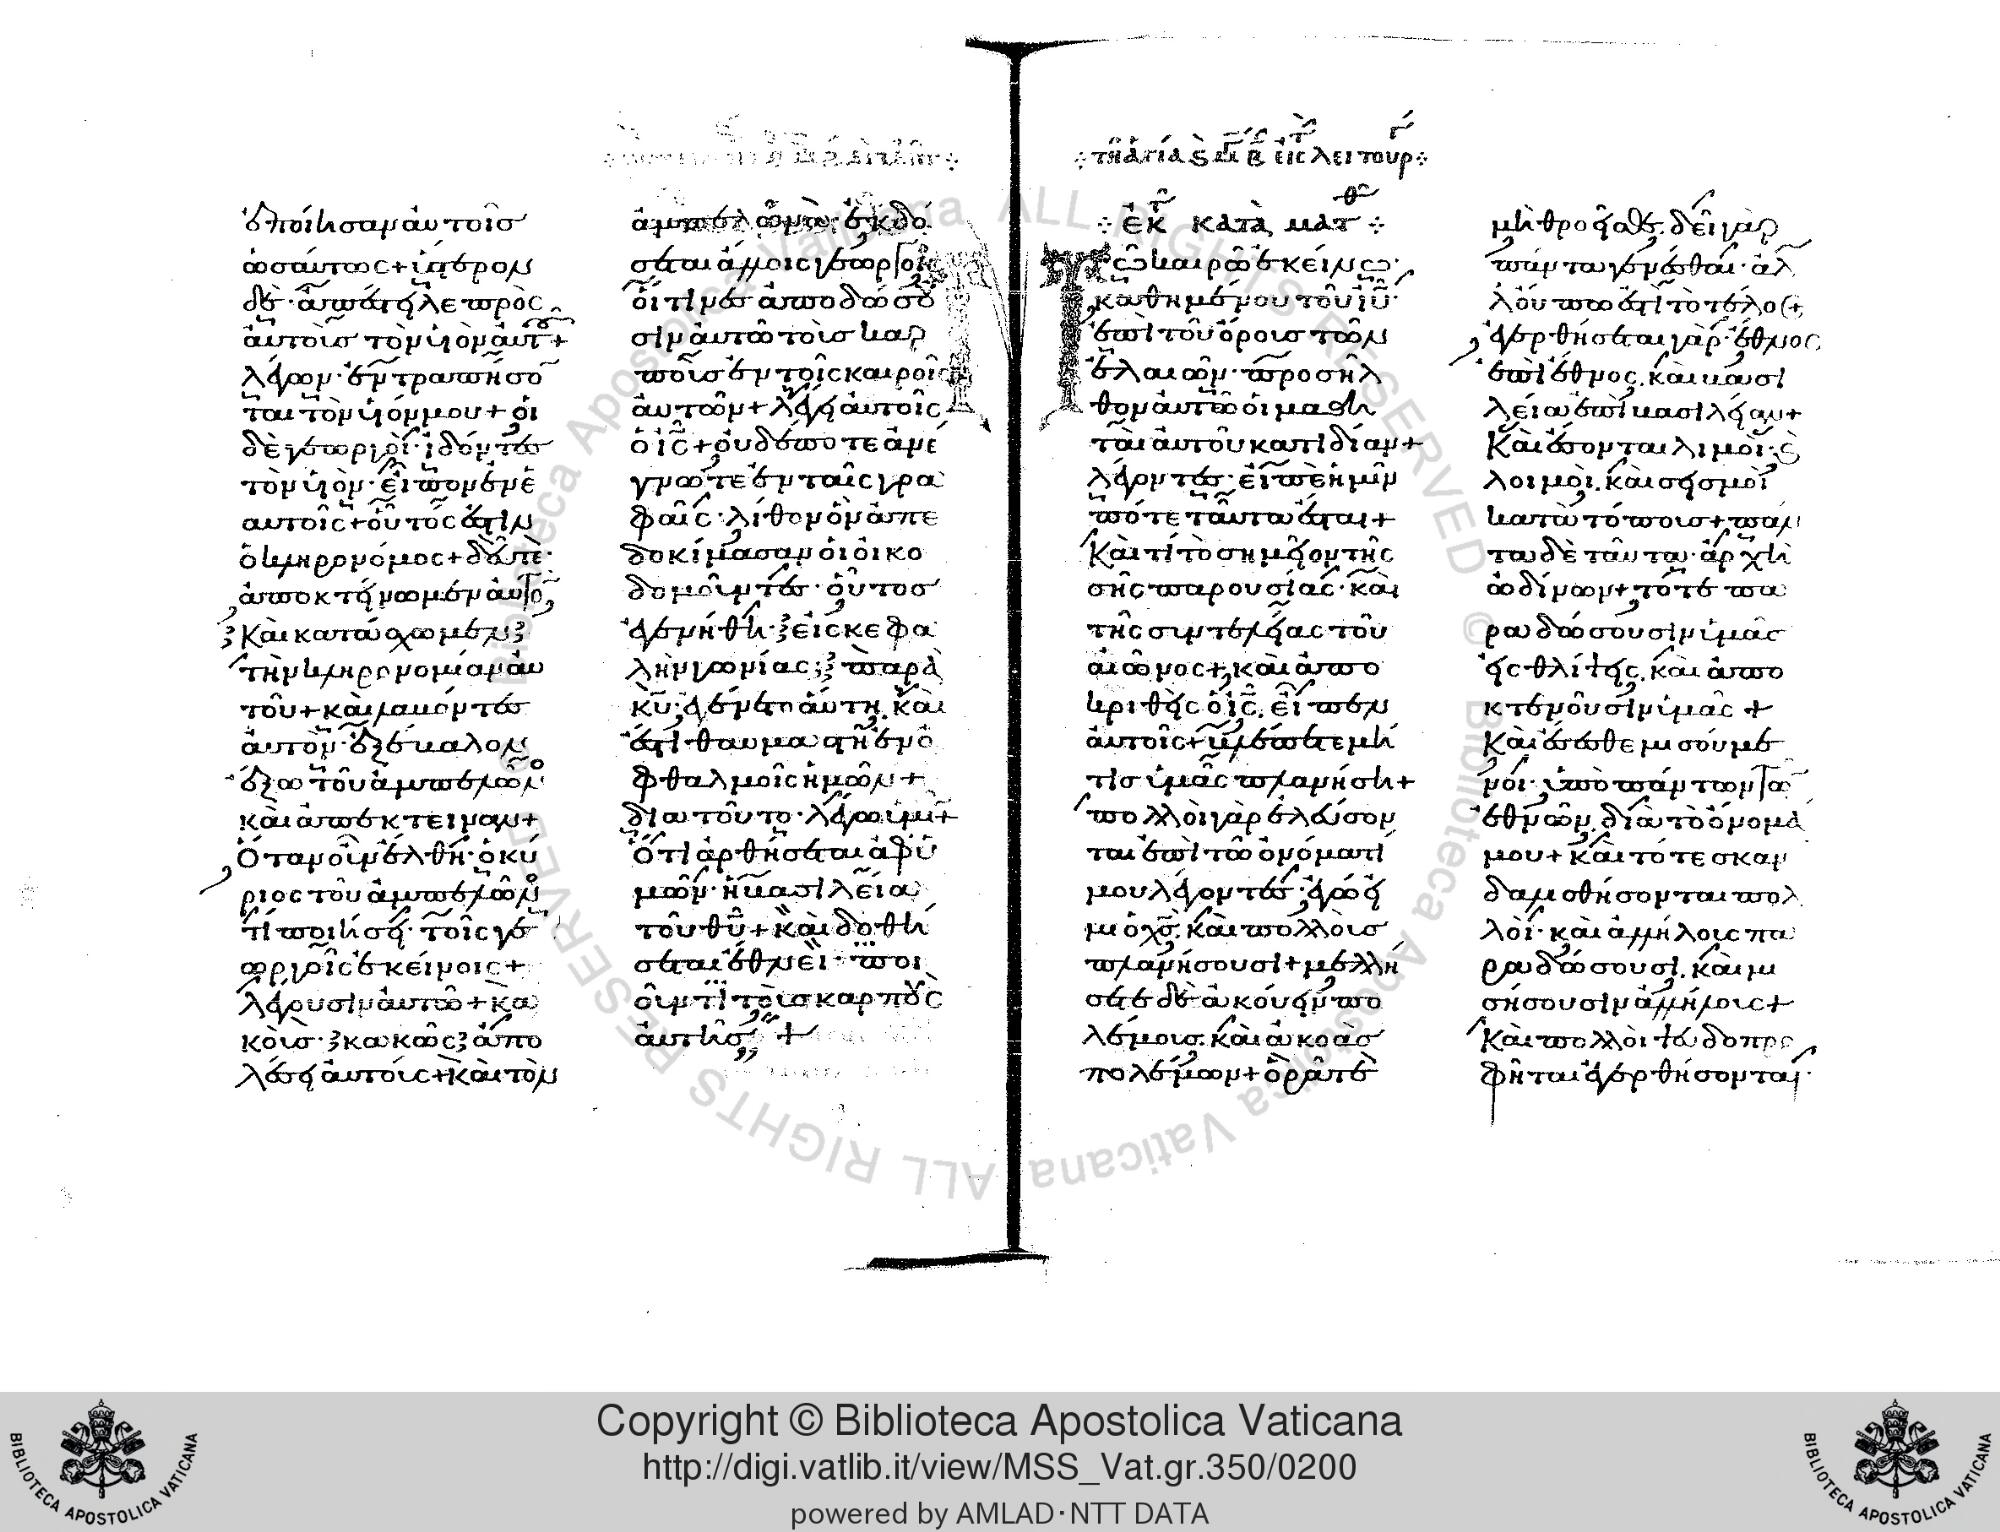 ἐποίησαν αὐτοῖσ
ὡσαύτως + ὕστερον
δὲ · ἀπέστειλε πρὸς
αὐτοὺσ τὸν υἱὸν αὐτοῦ +
λέγων · ἐντραπήσο
νται τὸν υἱόν μου + οἱ
δὲ γεωργοὶ · ἰδόντεσ
τὸν υἱὸν · εἶπον ἐν ἑ
αυτοῖς + οὗτός ἐστιν
ὁ κληρονόμος + δεῦτε ·
ἀποκτείνωμεν αὐτὸν
Καὶ κατάσχωμεν
τὴν κληρονομίαν αὐ
τοῦ + καὶ λαβόντεσ
αὐτὸν · ἐξέβαλον
ἔξω τοῦ ἀμπελῶνος
καὶ ἀπέκτειναν +
Ὅταν οὖν ἔλθη · ὁ κύ
ριος τοῦ ἀμπελῶνος
τί ποιήσει · τοῖς γε
ωργοῖς ἐκείνοις +
λέγουσιν αὐτῶ + κα
κοὺσ · κακῶς ἀπο
λέσει αὐτούς + Καὶ τὸν
ἀμπελῶνα · ἐκδό
σεται ἄλλοις γεωργοῖς
οἵτινεσ ἀποδώσου
σιν αὐτῶ τοὺσ καρ
ποὺσ ἐν τοῖς καιροῖς
αὐτῶν + λέγει αὐτοῖς
ὁ ις + οὐδέποτε ἀνέ
γνωτε ἐν ταῖς γρα
φαῖς · λίθον ὃν ἀπε
δοκίμασαν οἱ οἰκο
δομοῦντεσ · οὗτοσ
ἐγενήθη · εἰς κεφα
λὴν γωνίας · παρὰ
κυ · ἐγένετο αὕτη · καὶ
ἔστι · θαυμαστὴ ἐν ὀ
φθαλμοῖς ἡμῶν +
διατοῦτο · λέγω ὑμῖν +
Ὅτι ἀρθήσεται ἀφ' ὑ
μῶν · ἡ βασιλεία
τοῦ θυ + καὶ δοθή
σεται ἔθνει · ποι
οῦντι τοὺσ καρποὺς
αὐτῆσ +
τῆ ἁγία ϗ μγ β εἰς λειτουρ
ἐκ τ κατὰ ματθ
Τῶ καιρῶ ἐκείνω ·
καθημένου τοῦ ιυ ·
ἐπὶ τοῦ ὄρουσ τῶν
ἐλαιῶν · προσῆλ
θον αὐτῶ οἱ μαθη
ταὶ αὐτοῦ κατιδίαν +
λέγοντεσ · εἰπὲ ἡμῖν
πότε ταῦτα ἔσται +
Καὶ τί τὸ σημεῖον τῆς
σῆς παρουσίας · καὶ
τῆς συντελείας τοῦ
αἰῶνος + καὶ ἀπο
κριθεὶς ὁ ις · εἶπεν
αὐτοῖς + βλέπετε μή
τισ ὑμᾶς πλανήση +
πολλοὶ γὰρ ἐλεύσον
ται ἐπὶ τῶ ὀνόματί
μου λέγοντεσ · ἐγώ εἰ
μι ὁ χς · καὶ πολλοὺσ
πλανήσουσι + μελλή
σετε δὲ ἀκούειν πο
λέμουσ · καὶ ἀκοὰσ
πολέμων + ὁρᾶτε
μὴ θροεῖσθε · δεῖ γὰρ
πάντα γενέσθαι · ἀλ
λ' οὔπω ἐστὶ τὸ τέλος +
ἐγερθήσεται γὰρ · ἔθνος
ἐπὶ ἔθνος · καὶ βασι
λεία ἐπὶ βασιλείαν +
Καὶ ἔσονται λιμοὶ · ϗ
λοιμοὶ · καὶ σεισμοὶ
κατὰ τόπουσ + πάν
τα δὲ ταῦτα · ἀρχὴ
ὠδίνων + τότε πα
ραδώσουσιν ὑμᾶς
εἰς θλίψεις · καὶ ἀπο
κτενοῦσιν ὑμᾶς +
Καὶ ἔσεσθε μισούμε
νοι · ὑπὸ πάντων τῶν
ἐθνῶν · διὰ τὸ ὄνομά
μου + καὶ τότε σκαν
δαλισθήσονται πολ
λοὶ · καὶ ἀλλήλους πα
ραδώσουσι · καὶ μι
σήσουσιν ἀλλήλους +
Καὶ πολλοὶ ψευδοπρο
φῆται ἐγερθήσονται ·
ALL RIGHTS RESERVED © Biblioteca Apostolica Vaticana
Copyright © Biblioteca Apostolica Vaticana
http://digi.vatlib.it/view/MSS_Vat.gr.350/0200
powered by AMLAD·NTT DATA
BIBLIOTECA APOSTOLICA VATICANA
BIBLIOTECA APOSTOLICA VATICANA